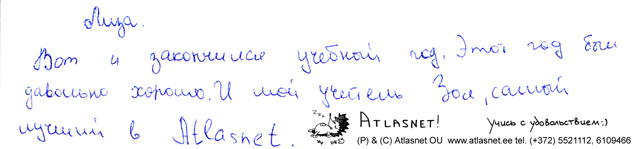 Лиза.
Вот и закончился учебный год. Этот год был
давольно хорошо. И мой учитель Зоя, самый
лучший в Atlasnet.
zzz ATLASNET! Учись с удовольствием:)
(P) & (C) Atlasnet OU www.atlasnet.ee tel. (+372) 5521112, 6109466